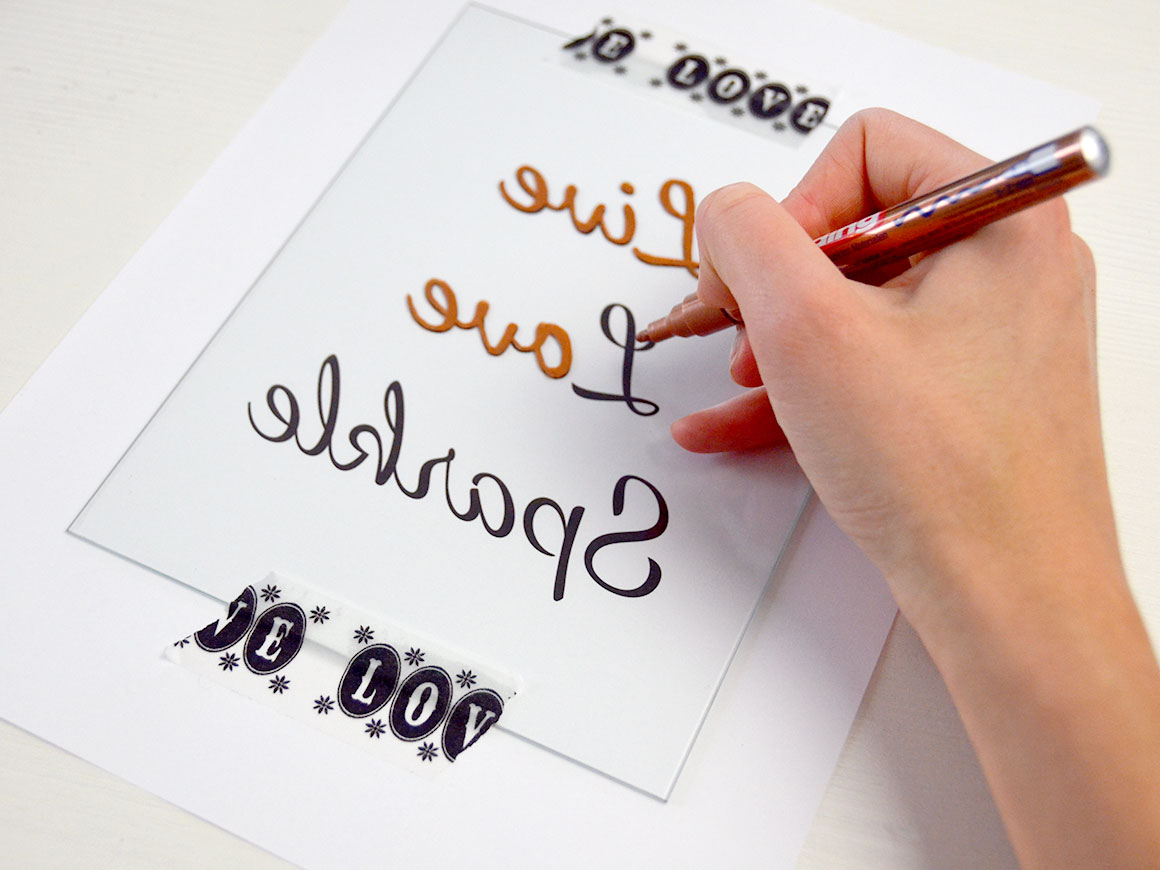 E LOVE
Live
Love
Sparkle
VE LOV